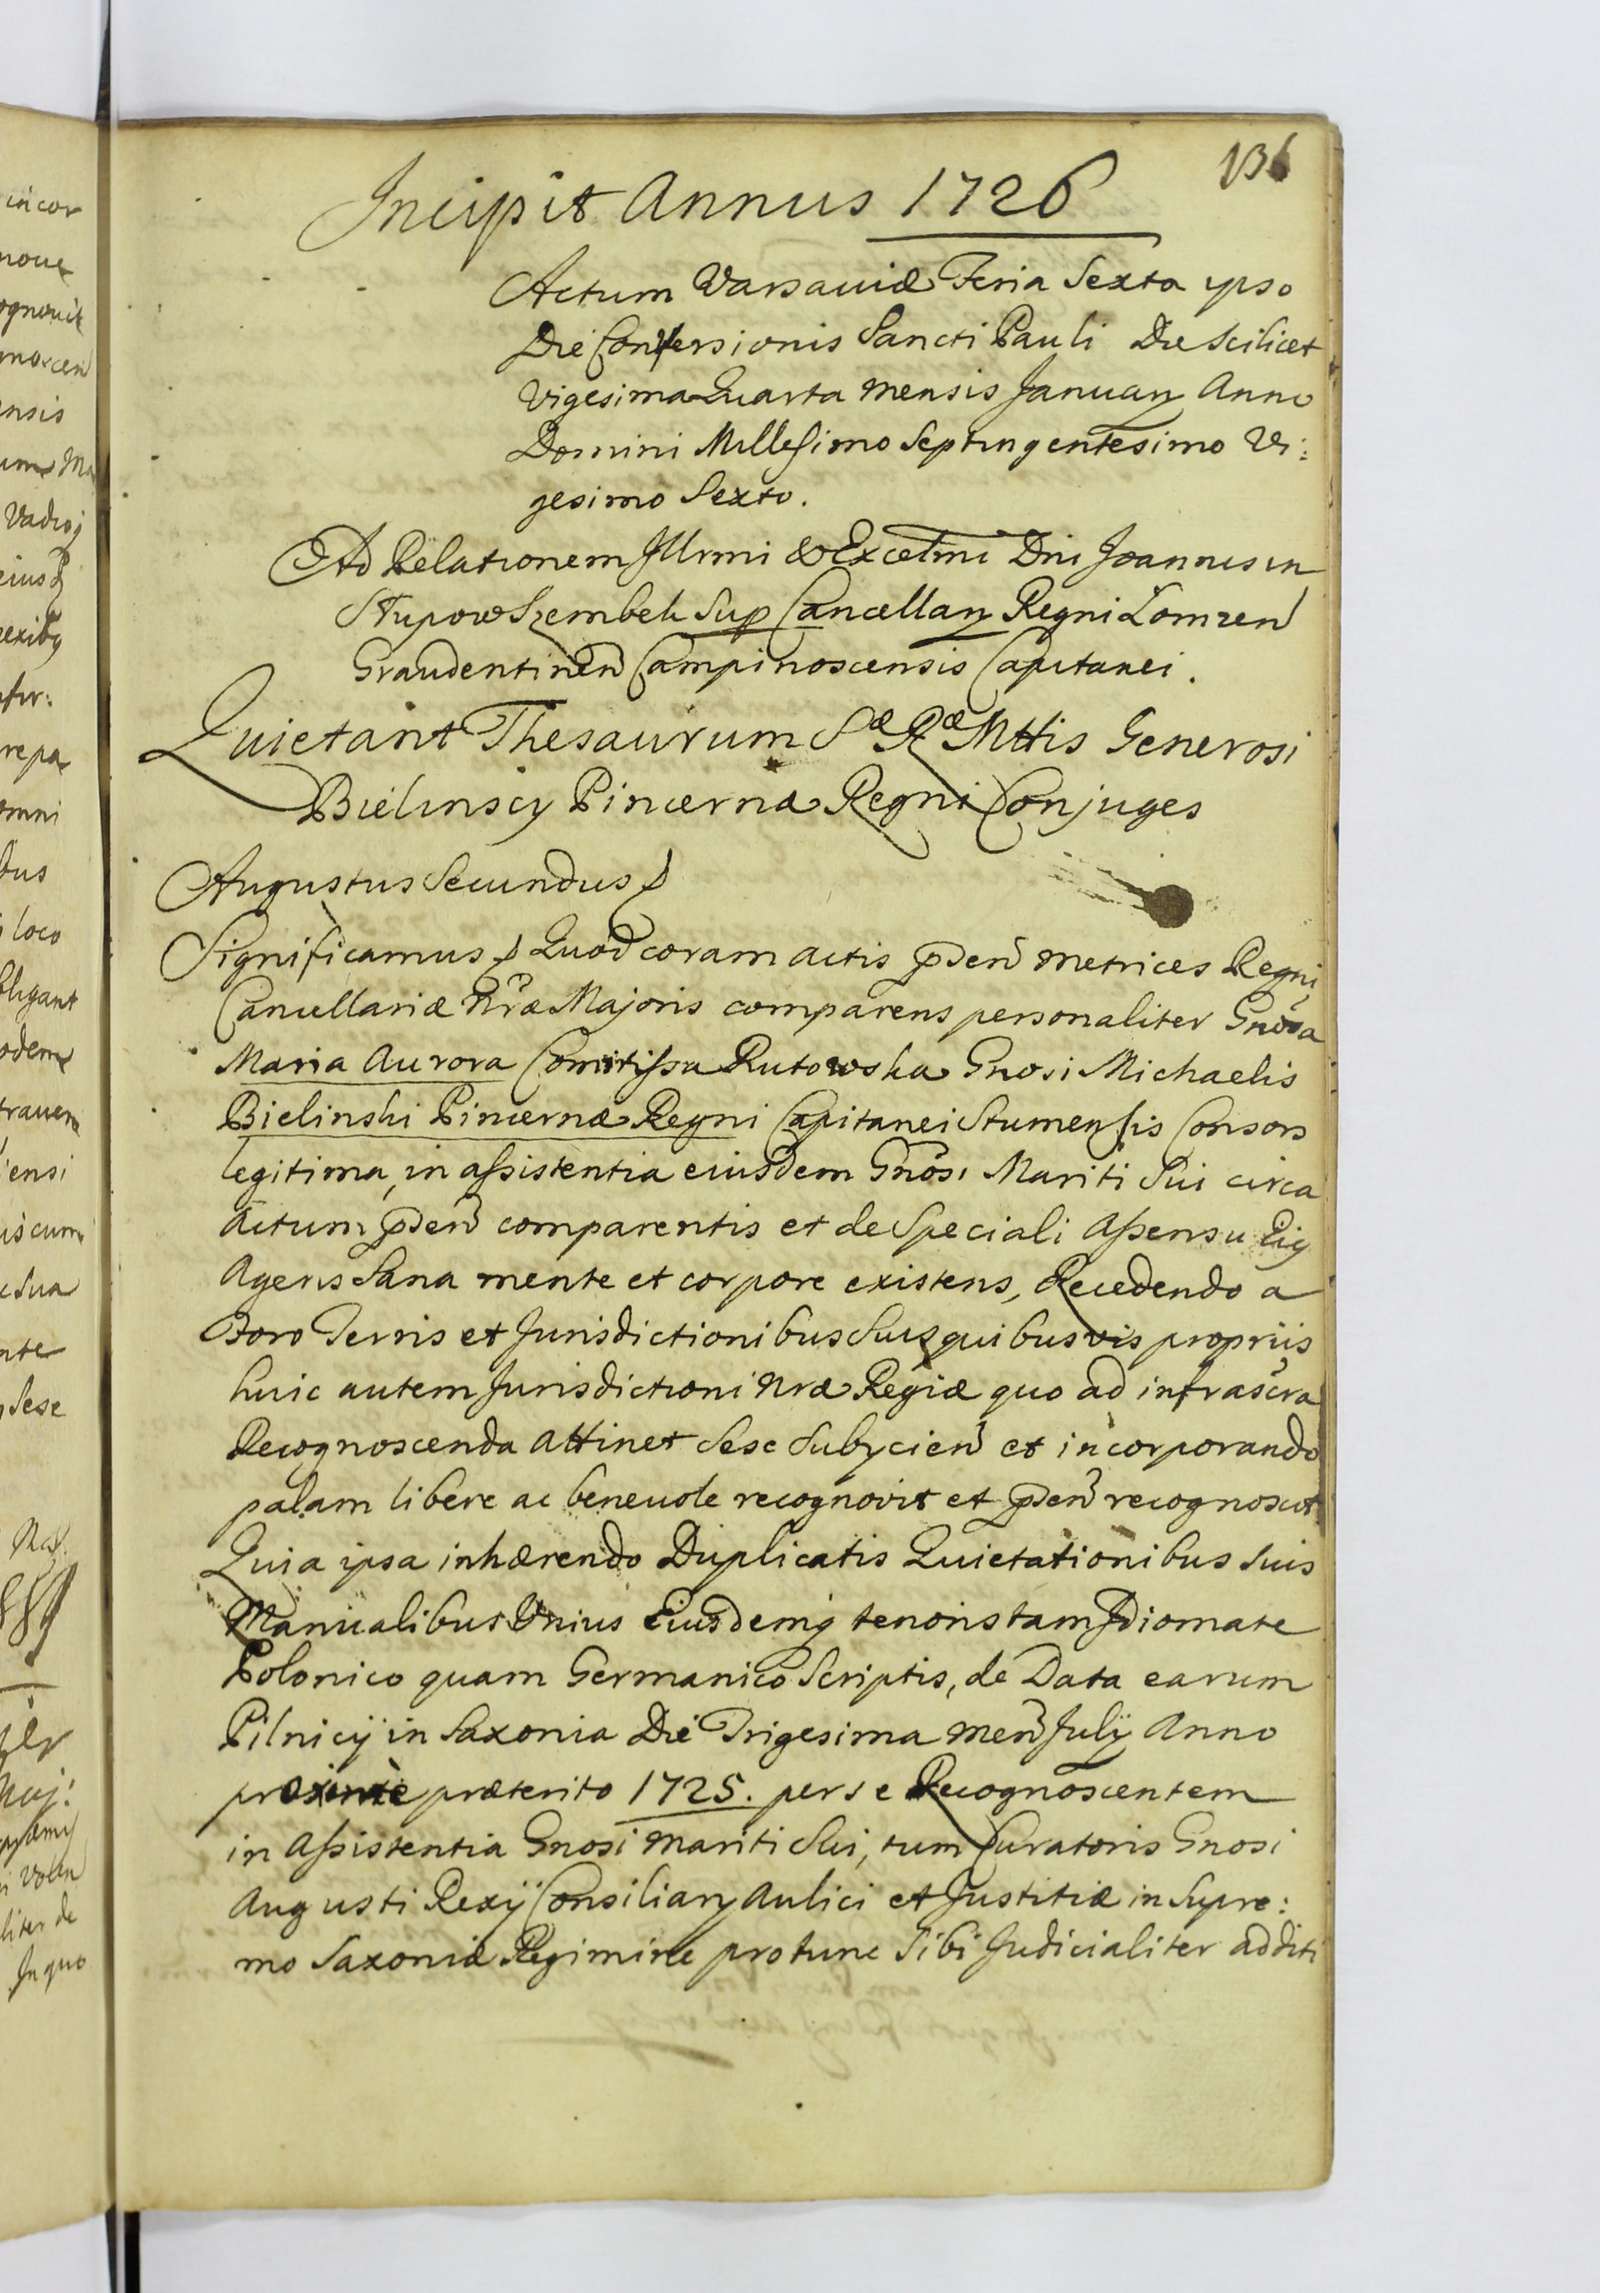 136
Incipit Annus 1726
Actum Varsaviæ Feria Sexta ipso
Die Conversionis Sancti Pauli Die scilicet
Vigesima Quarta mensis Januarij Anno
Domini Millesimo Septingentesimo Vi:
gesimo Sexto.
Ad Relationem Illrmi & Excelmi Dni Joannis in
Słupow Szembek Sup Cancellarij Regni Łomzen
Graudentinen Campinoscensis Capitanei.
Quietant Thesaurum Sæ Ræ Mttis Generosi
Bielinscy Pincernæ Regni Conjuges
Augustus Secundus
Significamus Quod coram actis pnden metrices Regni
Cancellariæ Nræ Majoris comparens personaliter Gnosa
Maria Aurora Comitissa Rutowska Gnosi Michaelis
Bielinski Pincernæ Regni Capitanei Stumensis Consors
legitima, in assistentia eiusdem Gnosi Mariti Sui circa
Actum pnden comparentis et de Speciali Assensu Eig
Agens Sana mente et corpore existens, Recedendo a
Foro Terris et Jurisdictionibus Suis quibusvis propriis
huic autem Jurisdictioni Nræ Regiæ quo ad infrascra
Recognoscenda attinet Sese Subijcien et incorporando
palam libere ac benevole recognovit et pnden recognoscit.
Quia ipsa inhærendo Duplicatis Quietationibus suis
Manualibus Unius Eiusdemq tenoris tam Idiomate
Polonico quam Germanico Scriptis, de Data earum
Pilnicij in Saxonia Die Trigesima Men Julij Anno
præterito 1725. per se Recognoscentem
in Assistentia Gnosi Mariti Sui, tum Curatoris Gnosi
Augusti Rexij Consiliarij Aulici et Justitiæ in Supre:
mo Saxoniæ Regimine protunc Sibi Judicialiter additi